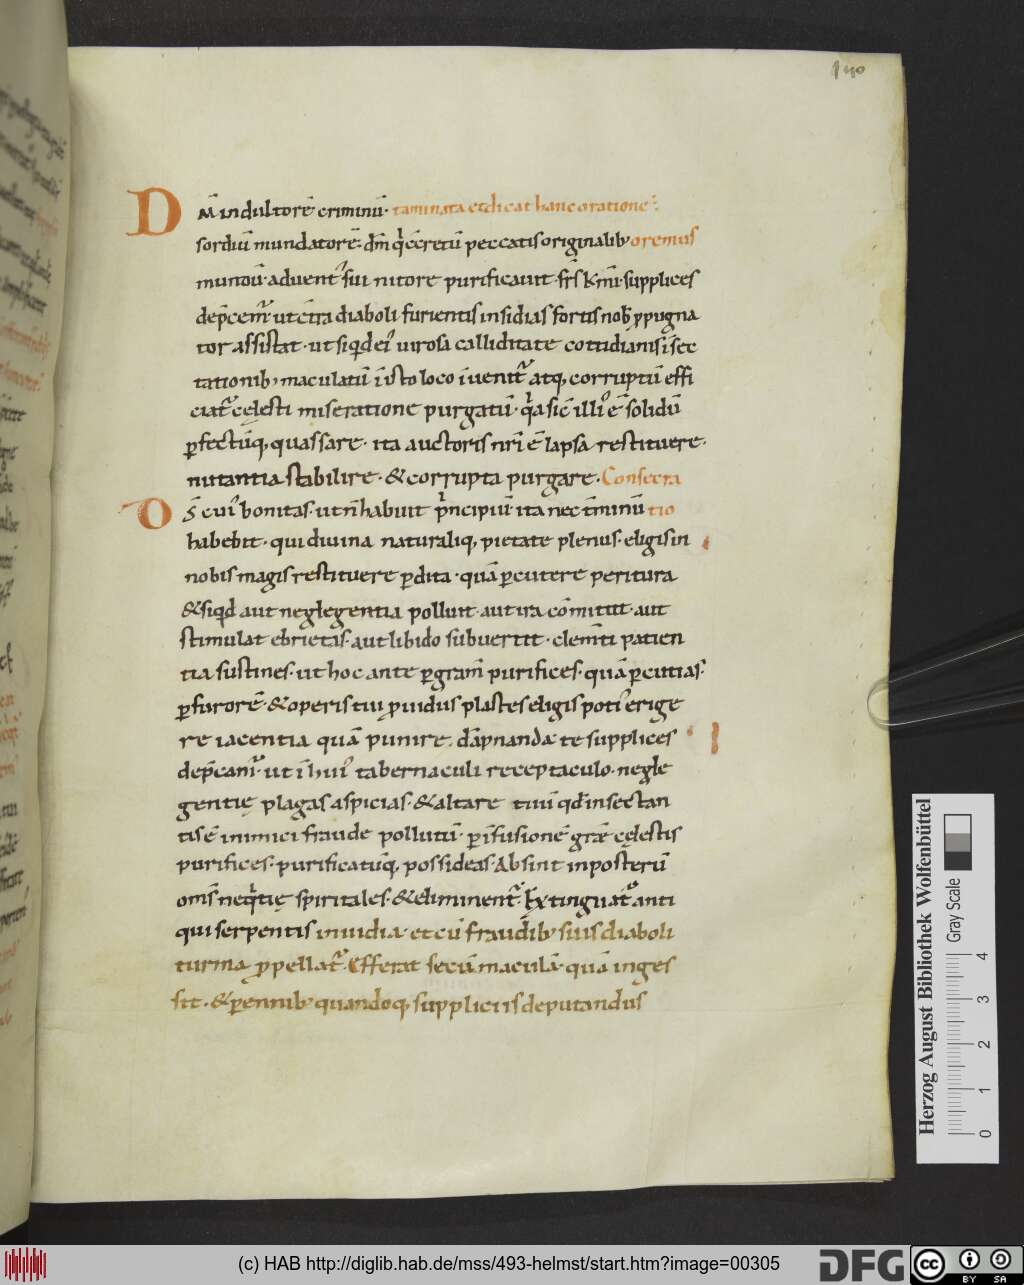 140
Dm̄ indultorē criminū· taminata et dicat hanc orationē:
sordiū mundatorē· dm̄ qi ccretū peccatis originalib; oremus
mundū· advent᷒ sui nitore purificavit· frs̄ kmi· supplices
dep̄cem᷒ ut ct̄ra diaboli furientis insidias fortis nob̄ ꝓpugna
tor assistat· ut siqd ei᷒ virosa calliditate cottidianis īfec
tationib; maculatū ī isto loco īvenit᷑ atq; corruptū effi
ciat᷑ cęlesti miseratione purgatū· qa sic̄ illi᷒ ē solidū
ꝑfectūq; quassare· ita auctoris nr̄i ē lapsa restituere·
nutantia stabilire· & corrupta purgare· Consecra
Ds̄ cui᷒ bonitas· ut n̄ habuit pincipiū· ita nec t̄minū tio
habebit· qui divina naturaliq; pietate plenus· eligis in
nobis magis restituere ꝑdita· quā ꝑcutere peritura
& siqd aut neglegentia polluit· aut ira cōmittit· aut
stimulat ebrietas· aut libido subvertit· clem̄ti patien
tia sustines· ut hoc ante ꝑ gram̄ purifices· quā ꝑcutias·
ꝑ furorē· & operis tui ꝓvidus plastes eligis poti᷒ erige
re iacentia quā punire· dāpnanda· te supplices
dep̄cam᷒· ut ī hui᷒ tabernaculi receptaculo· negle
gentię plagas aspicias· & altare tuū qd̄ insectan
tis ē inimici fraude pollutū· ꝑ īfusionē grae cęlestis
purifices· purificatūq; possideas· Absint inposterū
oms̄ neqitię spiritales· & eliminent᷑ Extinguat᷑ anti
qui serpentis invidia· et cū fraudib; suis diaboli
turma ꝓpellat᷑· Efferat secū maculā· quā inges
sit· & ꝑennib; quandoq; suppliciis deputandus
Herzog August Bibliothek Wolfenbüttel
Gray Scale
0 1 2 3 4
(c) HAB http://diglib.hab.de/mss/493-helmst/start.htm?image=00305
DFG
cc BY SA